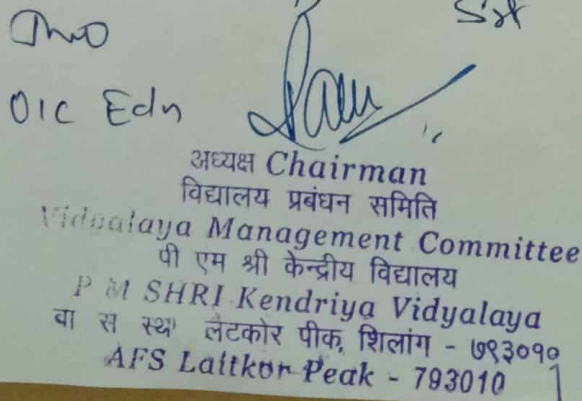 Thro
OIC Edn
अध्यक्ष Chairman
विद्यालय प्रबंधन समिति
Vidyalaya Management Committee
पी एम श्री केन्द्रीय विद्यालय
P M SHRI Kendriya Vidyalaya
वा स स्था लैटकोर पीक, शिलांग - ७९३०१०
AFS Laitkor Peak - 793010